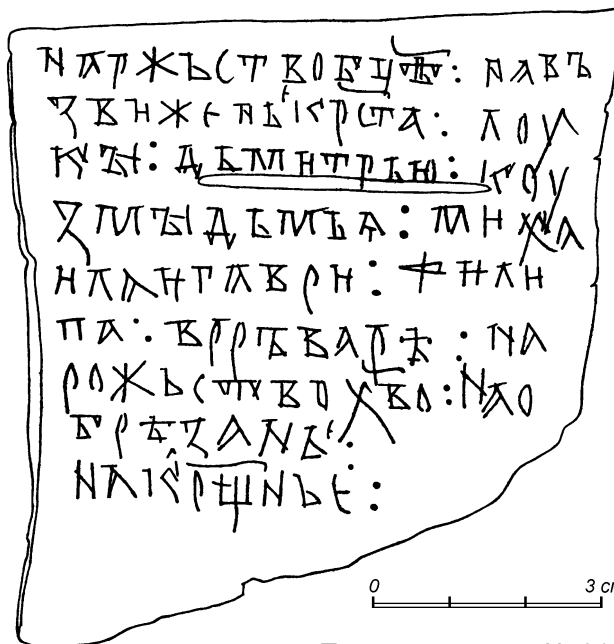 НАРЖЬСТВОБЦѢ : НАВЪ
ЗВНЖЕНЬЕКРСТА : ЛОУ
КЪІ : ДЬМНТРЬЮ : КОУ
ЗМЪІДЬМЬѦ : МНХА
НЛАНГАВРН : ФНЛН
ПА : ВРРЪВАРѢ : НА
РОЖЬСТВОХВО : НАО
БРѢЗАНЬЕ :
НАКРЩНЬЕ :
0 3